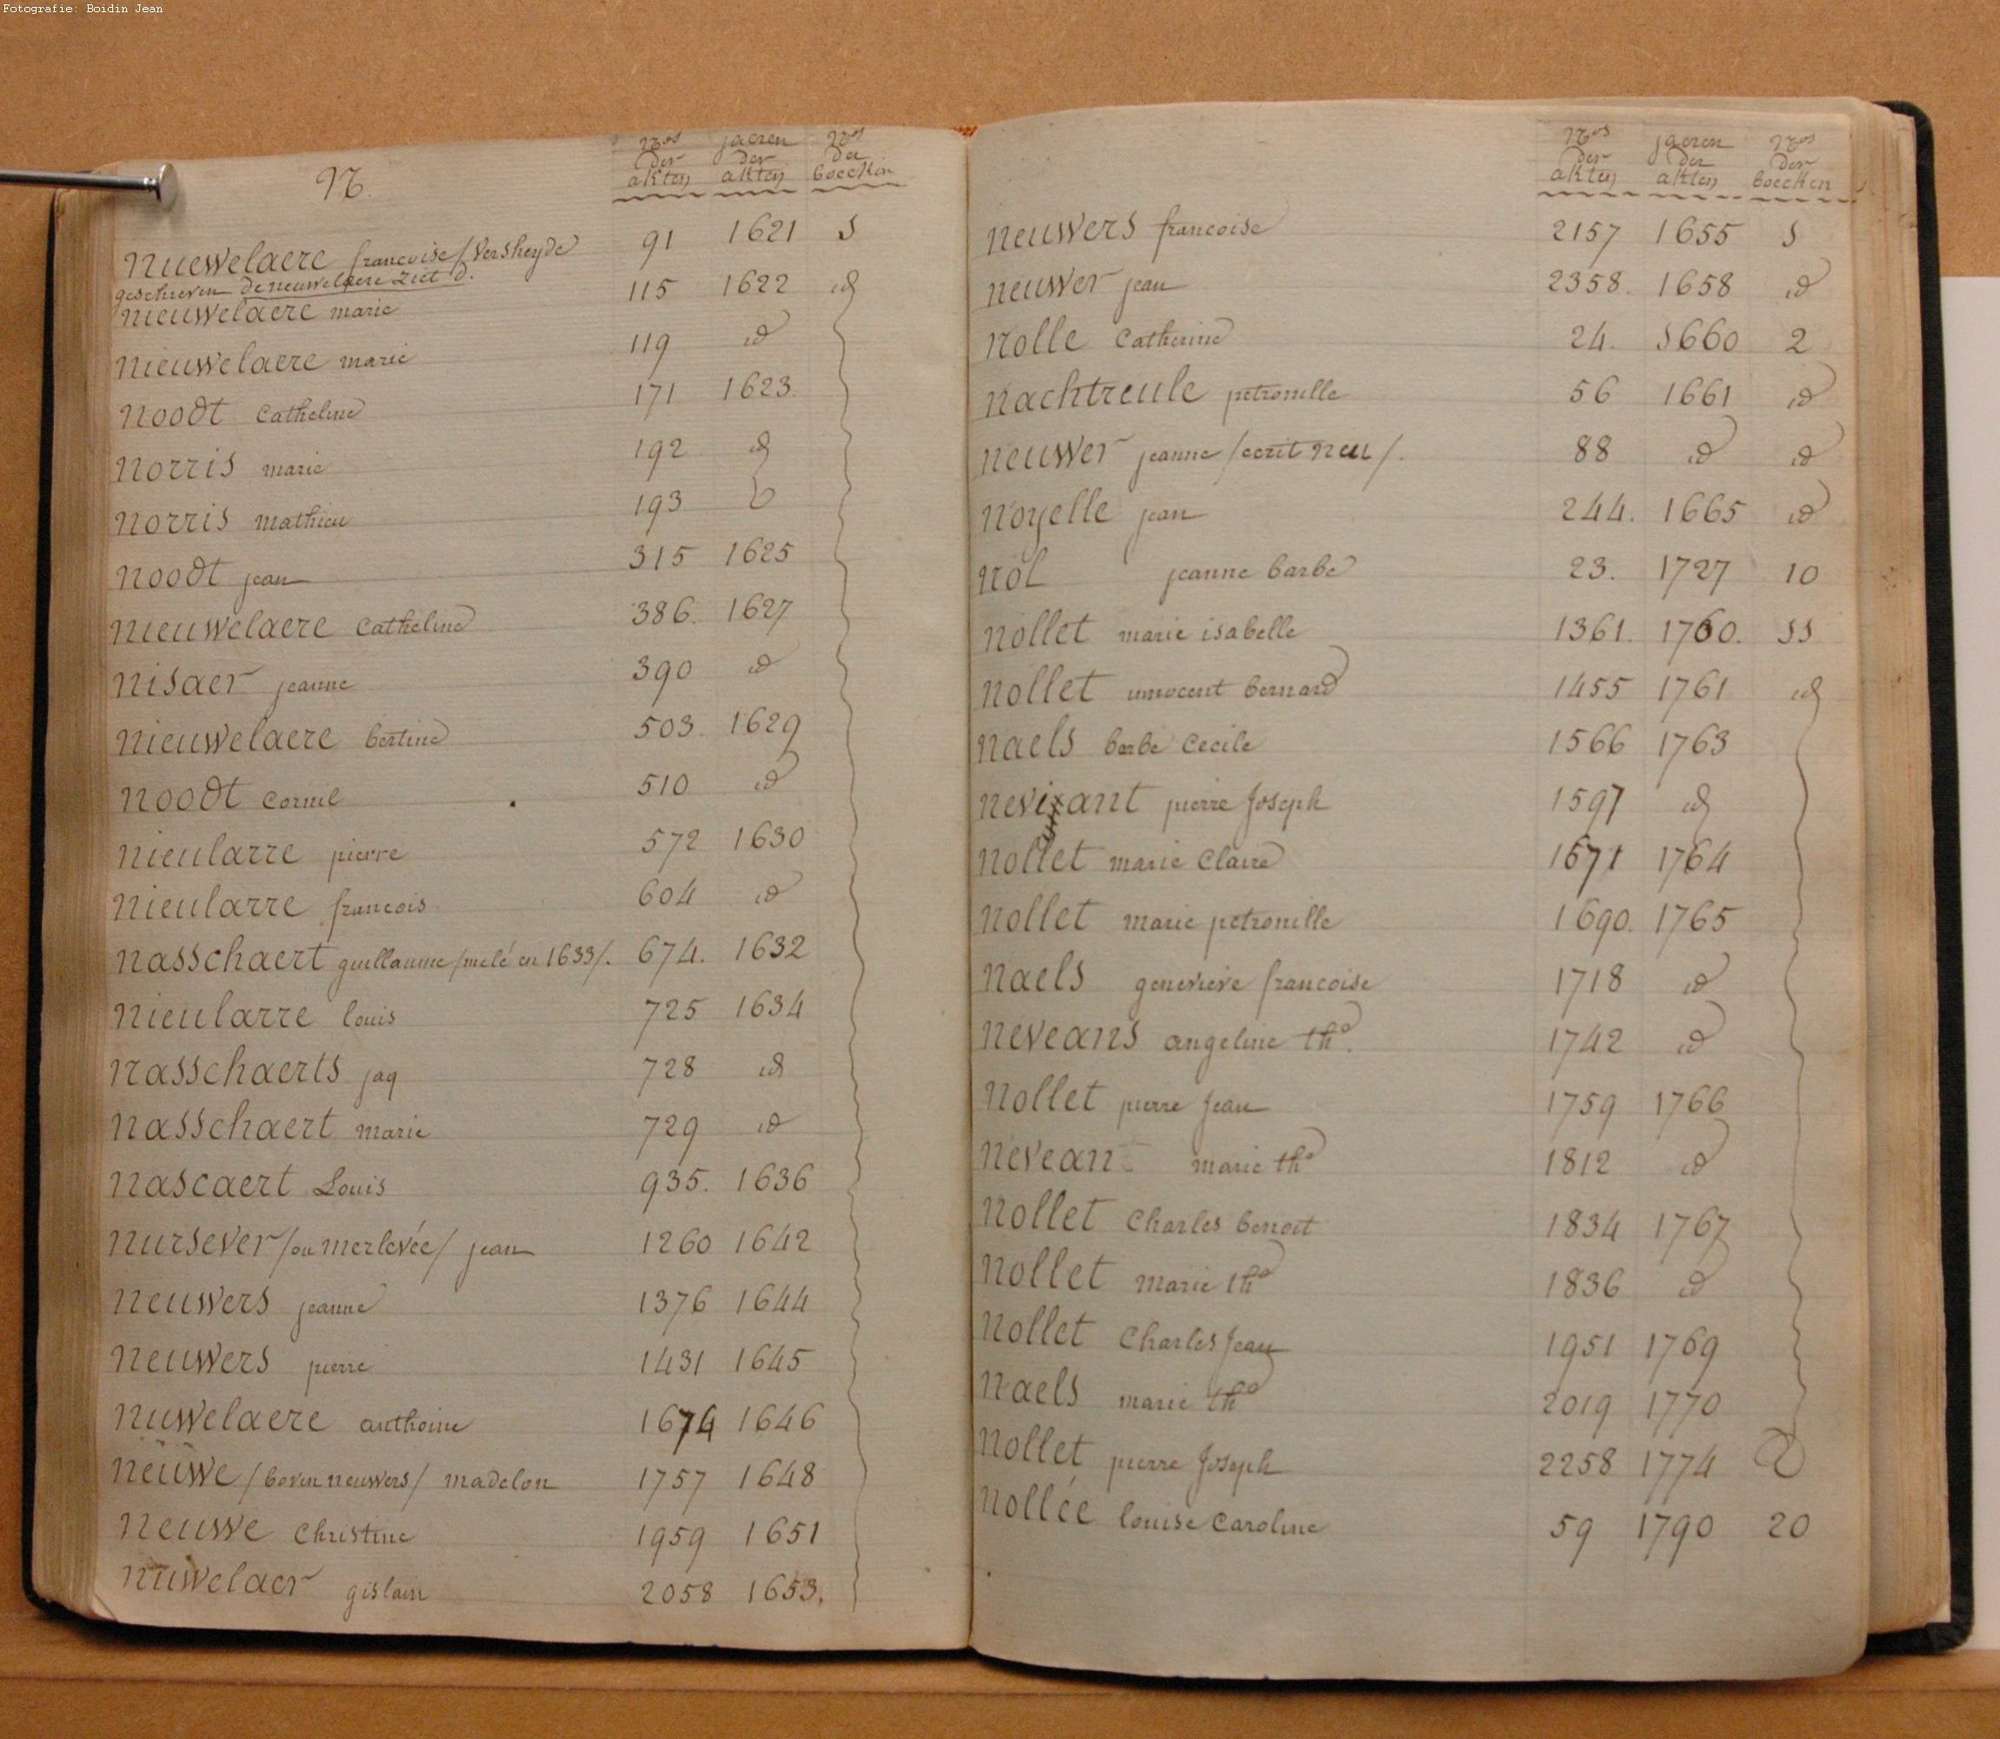 Fotografie: Boidin Jean
N.
Nos der akten
jaeren der akten
Nos der boecken
nuewelaere francoise / Versheyde 91 1621 1
geschreven de neuwelaere ziet d.
nieuwelaere marie 115 1622 id
nieuwelaere marie 119 id
noodt Catheline 171 1623
norris marie 192 id
norris mathieu 193
noodt jean 315 1625
nieuwelaere Catheline 386. 1627
nisaer jeanne 390 id
nieuwelaere bertine 503 1629
noodt Cornil 510 id
nieularre pierre 572 1630
nieularre francois 604 id
nasschaert guillaume /melé en 1633/. 674. 1632
nieularre louis 725 1634
nasschaerts jaq 728 id
nasschaert marie 729 id
nascaert Louis 935. 1636
nursever /ou merlevée/ jean 1260 1642
neuwers jeanne 1376 1644
neuwers pierre 1431 1645
nuwelaere anthoine 1674 1646
neuwe /boven neuwers/ madelon 1757 1648
neuwe Christine 1959 1651
nuwelaer gislain 2058 1653.
Nos der akten
jaeren der akten
Nos der boecken
neuwers francoise 2157 1655 1
neuwer jean 2358. 1658 id
nolle Catherine 24. 1660 2
nachtreule petronille 56 1661 id
neuwer jeanne /ecrit neu/. 88 id id
noyelle jean 244. 1665 id
nol jeanne barbe 23. 1727 10
nollet marie isabelle 1361. 1760. 11
nollet innocent bernard 1455 1761 id
naels barbe Cecile 1566 1763
nevixant pierre Joseph 1597 id
nollet marie Claire 1671 1764
nollet marie petronille 1690. 1765
naels genevieve francoise 1718 id
neveans angeline the. 1742 id
nollet pierre Jean 1759 1766
nevean marie the 1812 id
nollet Charles benoit 1834 1767
nollet marie the 1836 id
nollet Charles Jean 1951 1769
naels marie the 2019 1770
nollet pierre Joseph 2258 1774
nollée louise Caroline 59 1790 20